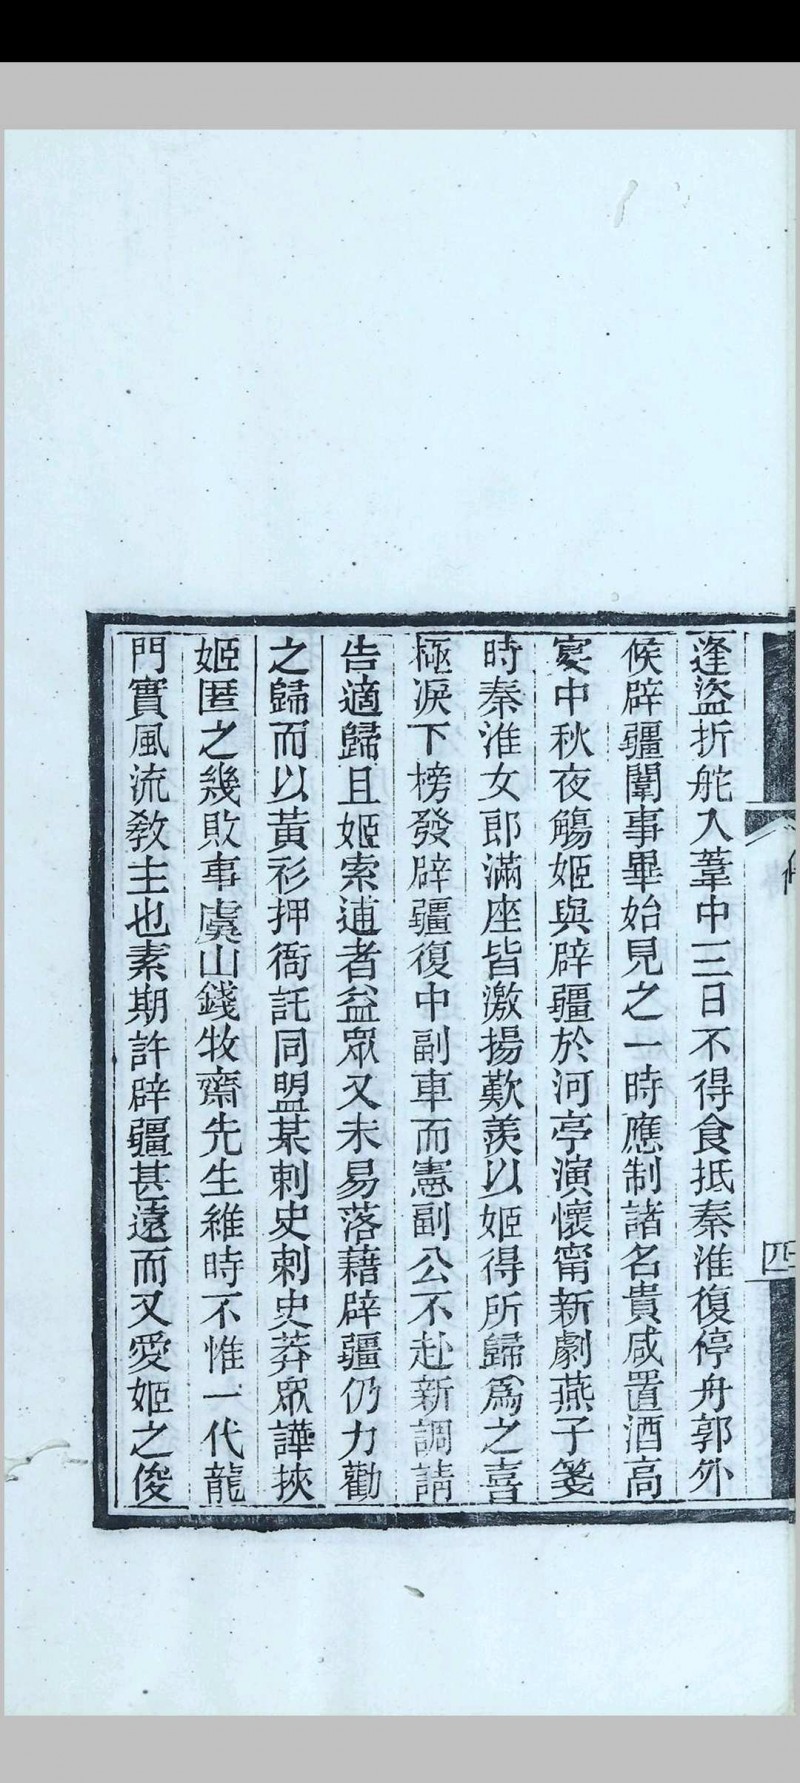 四
逢盜折舵入葦中三日不得食抵秦淮復停舟郭外
候辟疆闈事畢始見之一時應制諸名貴咸置酒高
宴中秋夜觴姬與辟疆於河亭演懷甯新劇燕子箋
時秦淮女郎滿座皆激揚歎羨以姬得所歸爲之喜
極淚下榜發辟疆復中副車而憲副公不赴新調請
告適歸且姬索逋者益眾又未易落藉辟疆仍力勸
之歸而以黃衫押衙託同盟某刺史刺史莽眾譁挾
姬匿之幾敗事虞山錢牧齋先生維時不惟一代龍
門實風流教主也素期許辟疆甚遠而又愛姬之俊